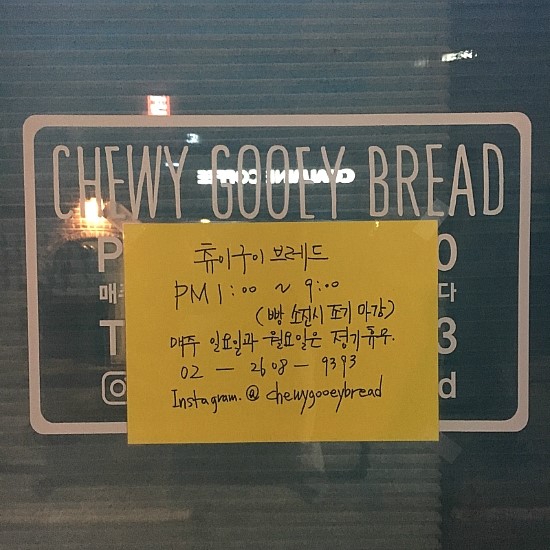 CHEWY GOOEY BREAD
츄이구이 브레드
PM 1:00 ~ 9:00
(빵 소진시 조기 마감)
매주 일요일과 월요일은 정기휴무.
02 - 2608 - 9393
Instagram. @ chewygooeybread